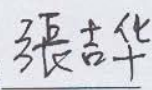 張吉华